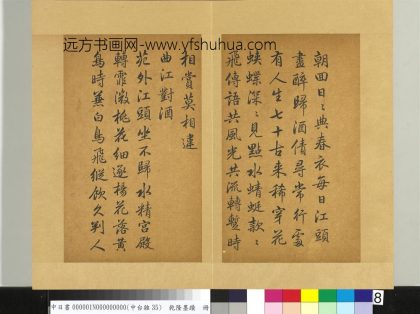 远方书画网-www.yfshuhua.com
朝回日〻典春衣每日江頭
盡醉歸酒債尋常行處
有人生七十古來稀穿花
蛺蝶深〻見點水蜻蜓款〻
飛傳語共風光共流轉蹔時
相賞莫相違
曲江對酒
苑外江頭坐不歸水精宮殿
轉霏微桃花細逐楊花落黃
鳥時蒹白鳥飛縱飲久判人
000001N000000000(中台雜35) 乾隆墨蹟 冊
8